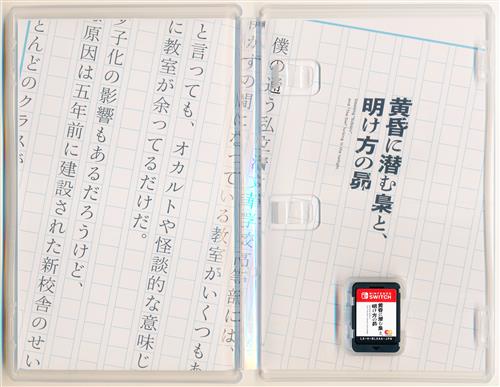 黄昏に潜む梟と、
明け方の昴
僕の通う私立学校高等部には、
かずの間になっている教室がいくつもあ
と言っても、オカルトや怪談的な意味じ
に教室が余ってるだけだ。
少子化の影響もあるだろうけど、
原因は五年前に建設された新校舎のせい
とんどのクラスが
NINTENDO
SWITCH
黄昏に潜む梟と、
明け方の昴